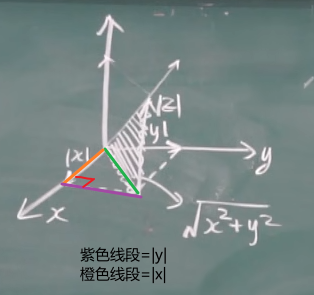 |z|
|y|
|x|
y
x
√x²+y²
紫色线段=|y|
橙色线段=|x|